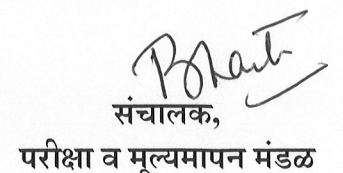 संचालक,
परीक्षा व मूल्यमापन मंडळ